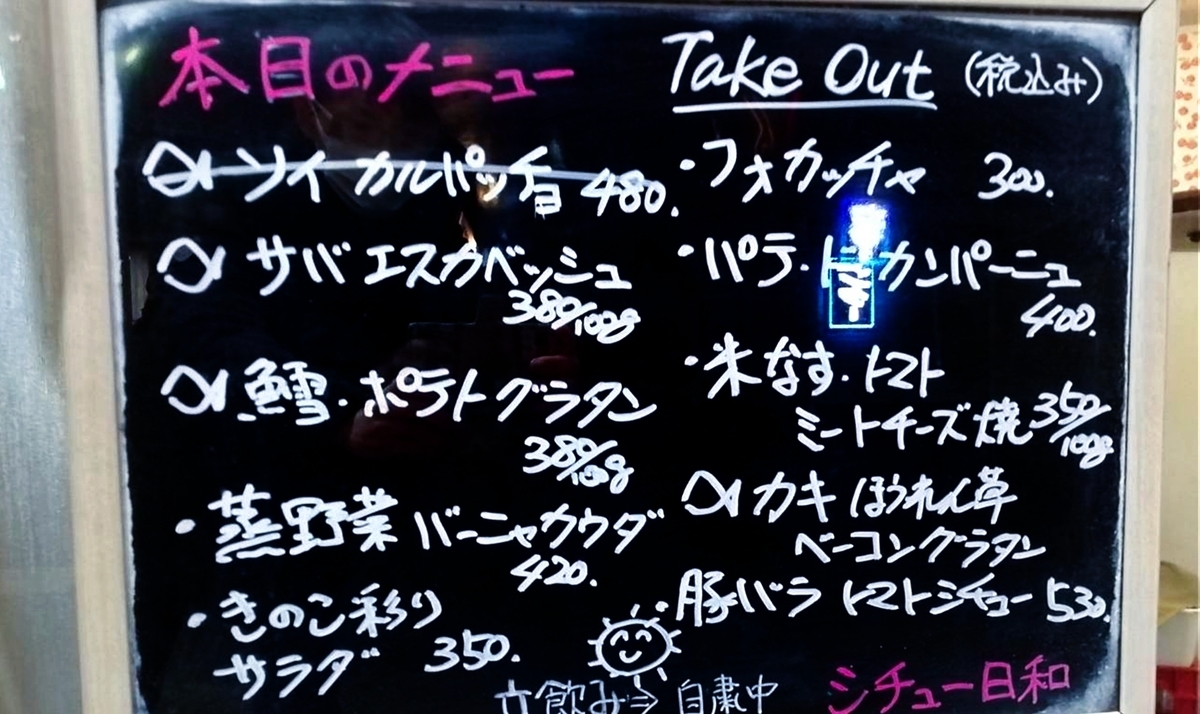 本日のメニュー
Take Out (税込み)
ソイ カルパッチョ 480.
サバ エスカベッシュ
380/100g
鱈・ポテトグラタン
380/100g
・蒸野菜 バーニャカウダ
420.
・きのこ彩り
サラダ 350.
・フォカッチャ 300.
・パテ・ド カンパーニュ
400.
・米なす・トマト
ミートチーズ焼 350/100g
カキ ほうれん草
ベーコングラタン
・豚バラ トマトシチュー 530.
立飲み⇒自粛中
シチュー日和